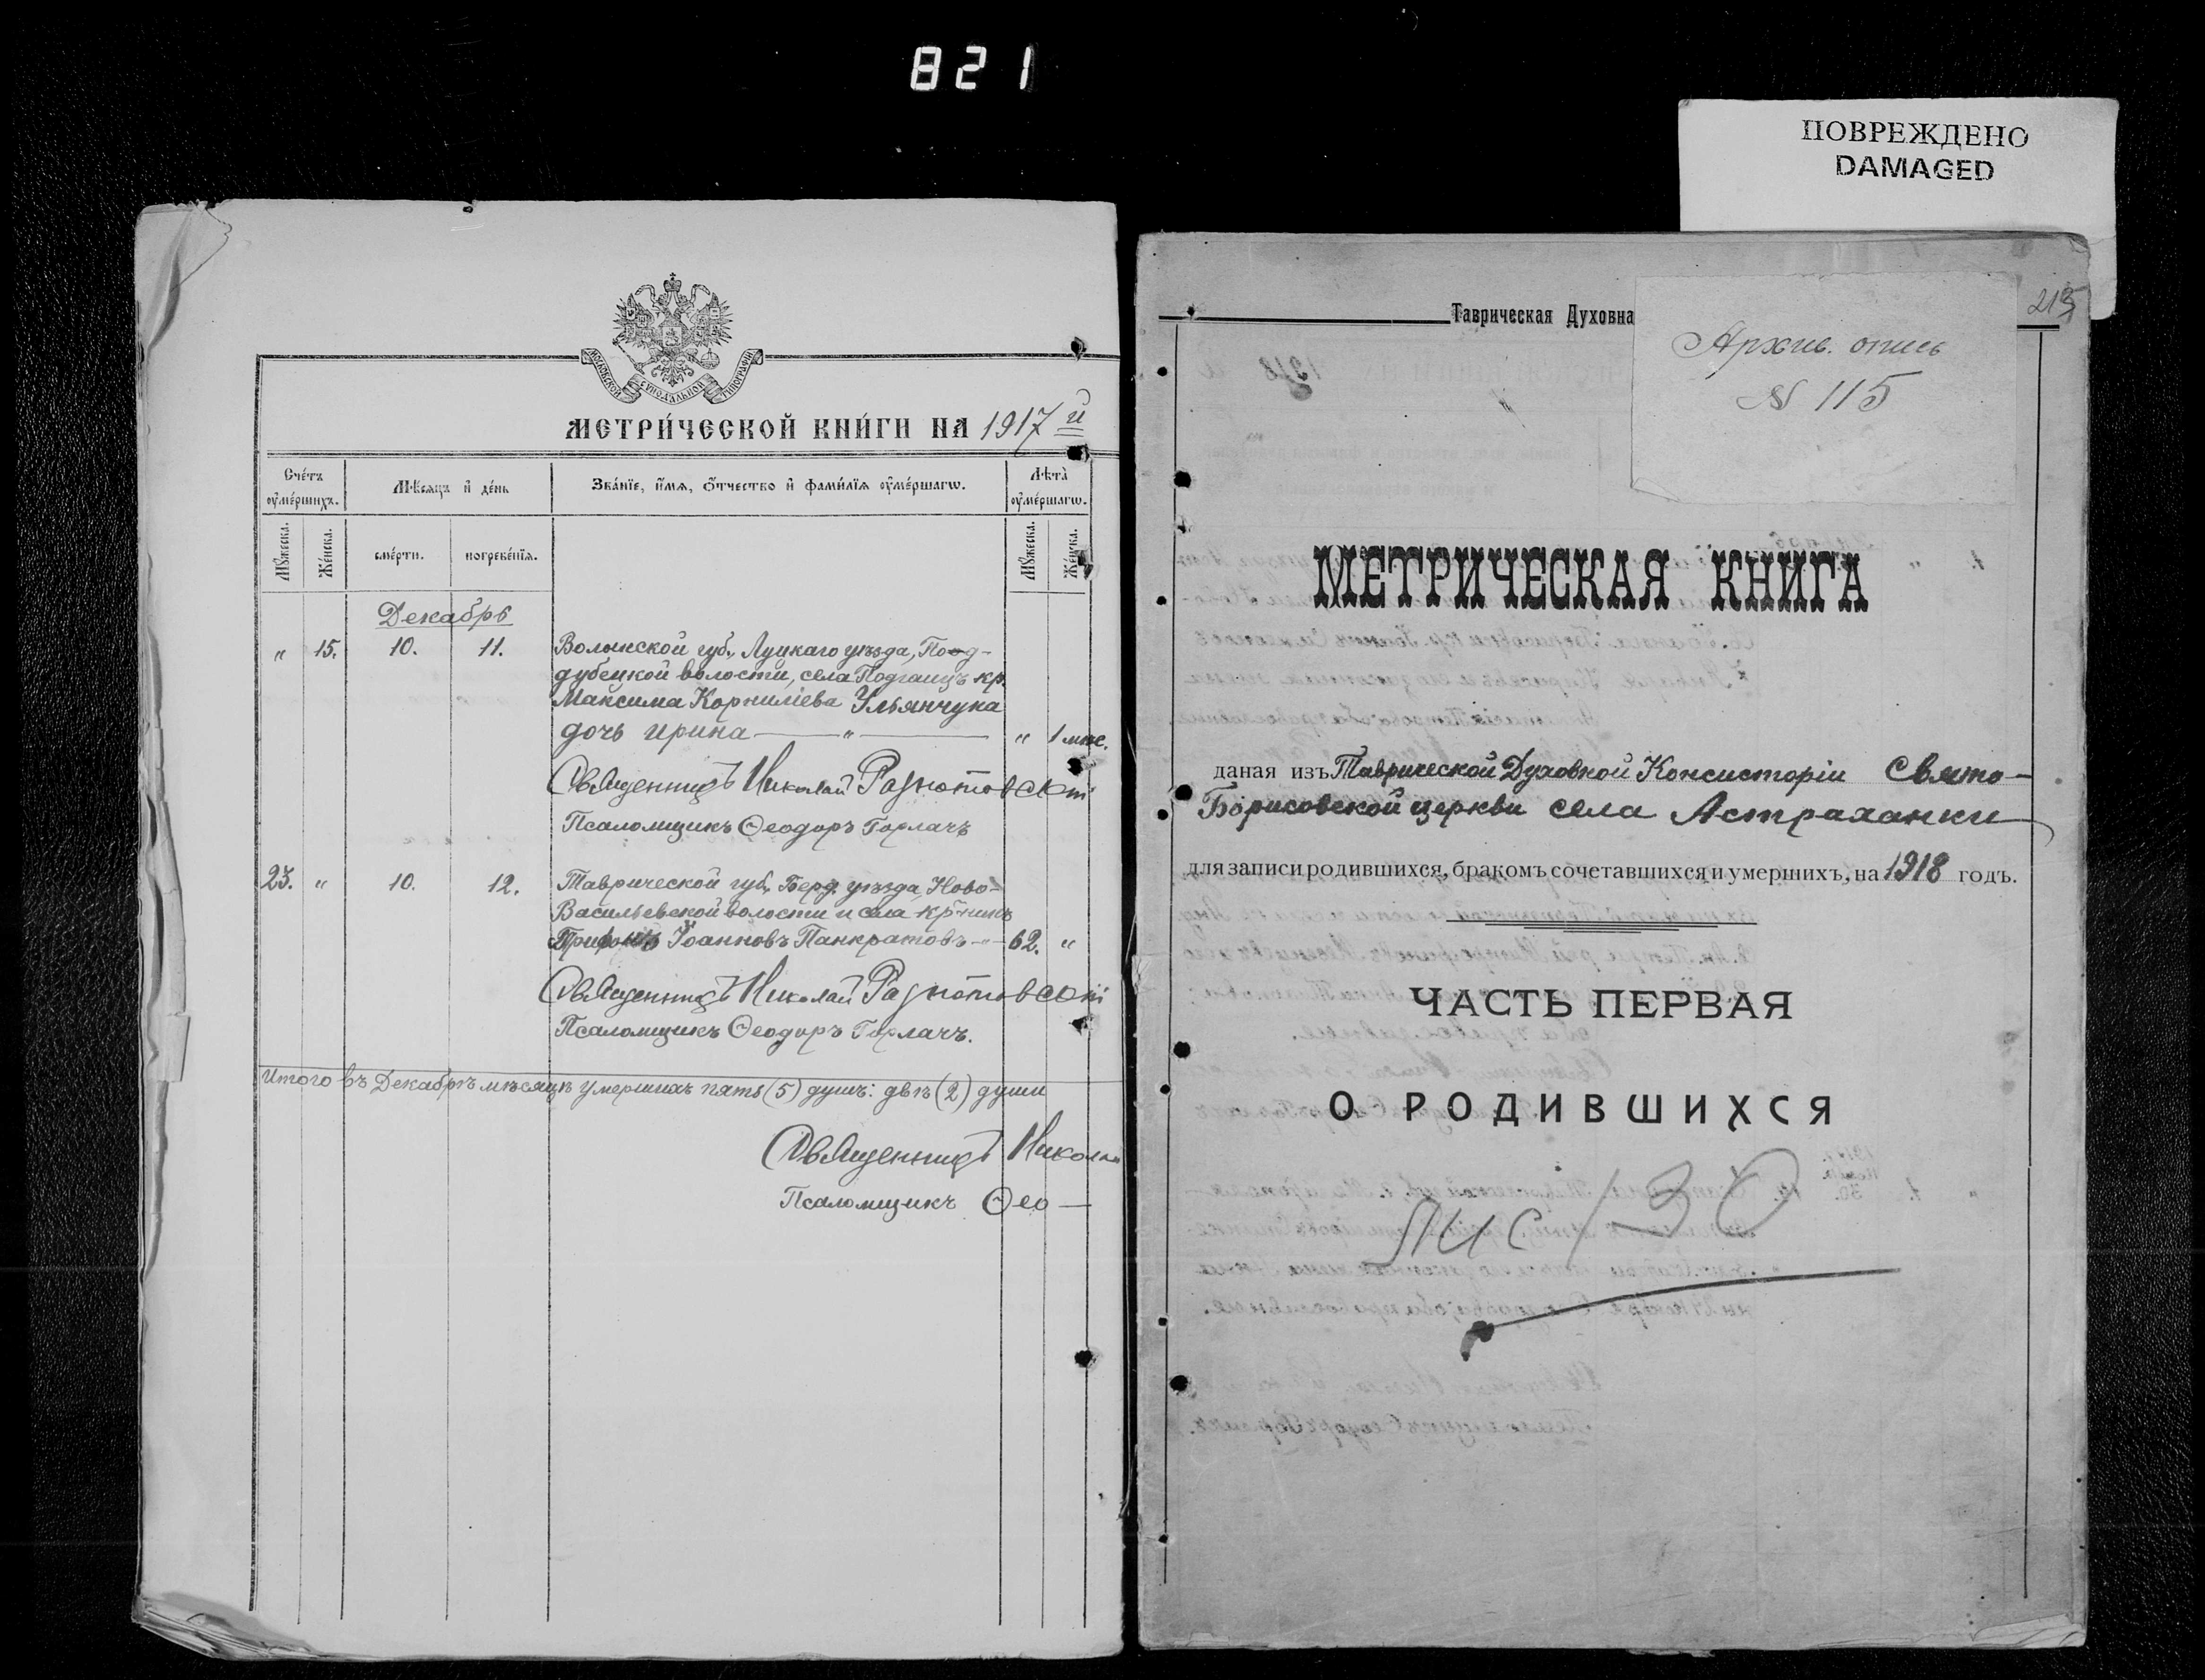 821
ПОВРЕЖДЕНО
DAMAGED
МОСКОВСКОЙ СѴНОДАЛЬНОЙ ТИПОГРАФІИ
МЕТРИ́ЧЕСКОЙ КНИ́ГИ НА 1917й
Сче́тъ ᲂу҆ме́ршихъ.
Мѣ́сяцъ и҆ де́нь
Зва́нїе, и҆́мѧ, ѻ҆́тчество и҆ фами́лїѧ ᲂу҆ме́ршагѡ.
Лѣ́та ᲂу҆ме́ршагѡ.
Мꙋ́жеска.
Же́нска.
сме́рти.
погребе́нїѧ.
Мꙋ́жеска.
Же́нска.
Декабрь
„ 15. 10. 11. Волынской губ., Луцкаго уѣзда, Под-
дубецкой волости, села Подгаицъ кр.
Максима Корниліева Ульянчука
дочь Ирина — „ — „ 1 мѣс.
Священникъ Николай
Псаломщикъ Ѳеодоръ Горлачъ
23. „ 10. 12. Таврической губ., Берд. уѣзда, Ново-
Васильевской волости и села кр-нинъ
Трифонъ Іоанновъ Панкратовъ — 62. „
Священникъ Николай
Псаломщикъ Ѳеодоръ Горлачъ.
Итого въ Декабрѣ мѣсяцѣ умершихъ пять (5) душъ: двѣ (2) души
Священникъ Николай
Псаломщикъ Ѳео—
Таврическая Духовна
Архив. опись
№ 115
МЕТРИЧЕСКАЯ КНИГА
даная изъ Таврической Духовной Консисторіи Свято-
Борисовской церкви села Астраханки
для записи родившихся, бракомъ сочетавшихся и умершихъ, на 1918 годъ.
ЧАСТЬ ПЕРВАЯ
О РОДИВШИХСЯ